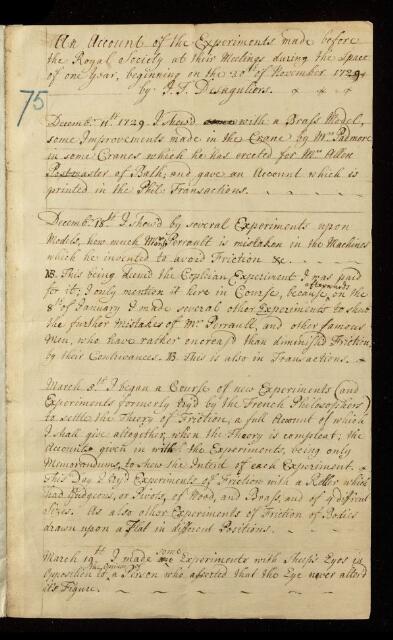 An Account of the Experiments made before
the Royal Society at their Meetings during the space
of one Year, beginning on the 30th of November 1729
by J. T. Desaguliers.
75
Decemb. 11th 1729 I shew'd with a Brass Model,
some Improvements made in the Crane by Mr. Padmore
in some Cranes which he has erected for Mr. Allen
Postmaster of Bath; and gave an Account which is
printed in the Phil: Transactions.
Decemb. 18th I shew'd by several Experiments upon
Models, how much Monsr. Perrault is mistaken in the Machines
which he invented to avoid Friction &c.
NB. This being deem'd the Coplian Experiment I was paid
for it; I only mention it here in Course, because afterwards on the
8th of January I made several other Experiments to shew
the further mistakes of Mr. Perrault, and other famous
Men, who have rather encreas'd than diminish'd Friction
by their Contrivances. NB. this is also in Transactions.
March 5th I began a Course of new Experiments (and
Experiments formerly try'd by the French Philosophers)
to settle the Theory of Friction, a full Account of which
I shall give altogether, when the Theory is compleat; the
Accounts given in with the Experiments, being only
Memorandums, to shew the Intent of each Experiment.
This Day I try'd Experiments of Friction with a Roller which
had Gudgeons, or Pivots, of Wood, and Brass, and of different
Sizes. As also other Experiments of Friction of Bodies
drawn upon a Flat in different Positions.
March 19th I made some Experiments with Sheep's Eyes in
Opposition to the Opinion of a Person who asserted that the Eye never alter'd
its Figure.